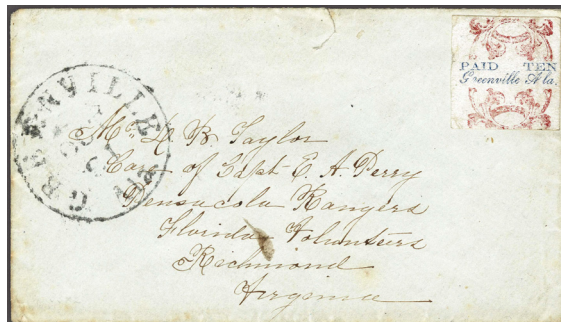 PAID TEN
Greenville Ala.
GREENVILLE
Mr. L. B. Taylor
Care of Capt E. A. Perry
Pensacola Rangers
Florida Volunteers
Richmond
Virginia